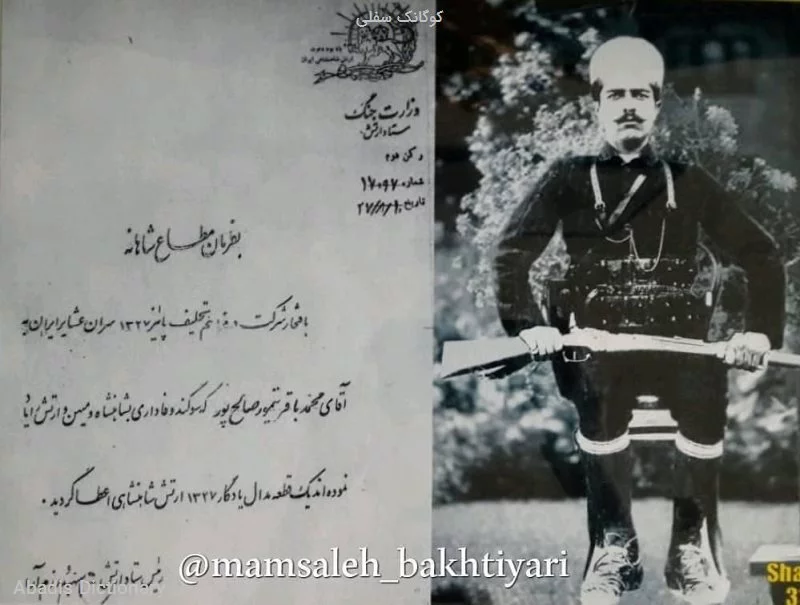 کوگانک سفلی
ارتش شاهنشاهی ایران
وزارت جنگ
ستاد ارتش
رکن دوم
شماره ۱۷۰۹۷
تاریخ
بفرمان مطاع شاهانه
بافتخار شرکت در تحلیف پائیز ۱۳۲۷ سران عشایر ایران به
آقای محمد باقر تیمور صالح پور که سوگند وفاداری بشاهنشاه و میهن و ارتش ایاد
نموده اند یک قطعه مدال یادگار ۱۳۲۷ ارتش شاهنشاهی اعطا گردید.
رئیس ستاد ارتش
@mamsaleh_bakhtiyari
Abadis Dictionary
Sha
3